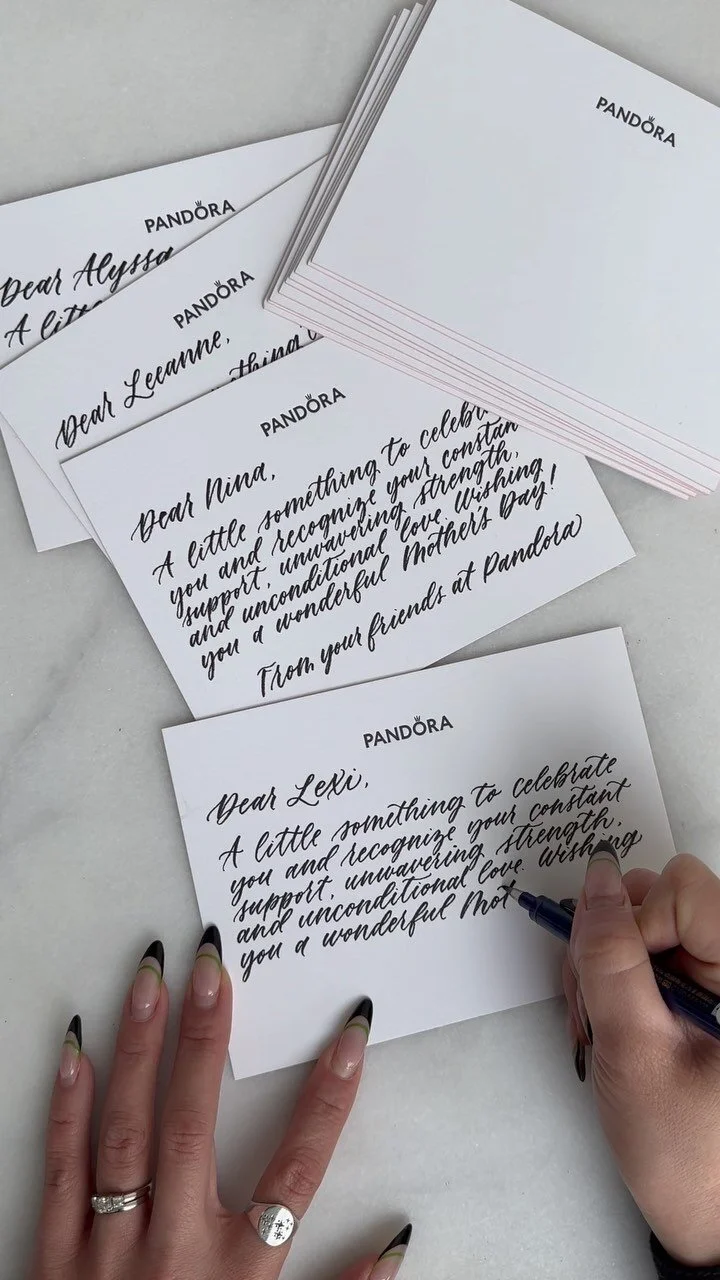 PANDORA
PANDORA
Dear Alyssa
A litt
PANDORA
Dear Leeanne,
thing
PANDORA
Dear Nina,
A little something to celebr
you and recognize your constan
support, unwavering strength,
and unconditional love. Wishing
you a wonderful Mother's Day!
From your friends at Pandora
PANDORA
Dear Lexi,
A little something to celebrate
you and recognize your constant
support, unwavering strength,
and unconditional love. Wishing
you a wonderful Mot